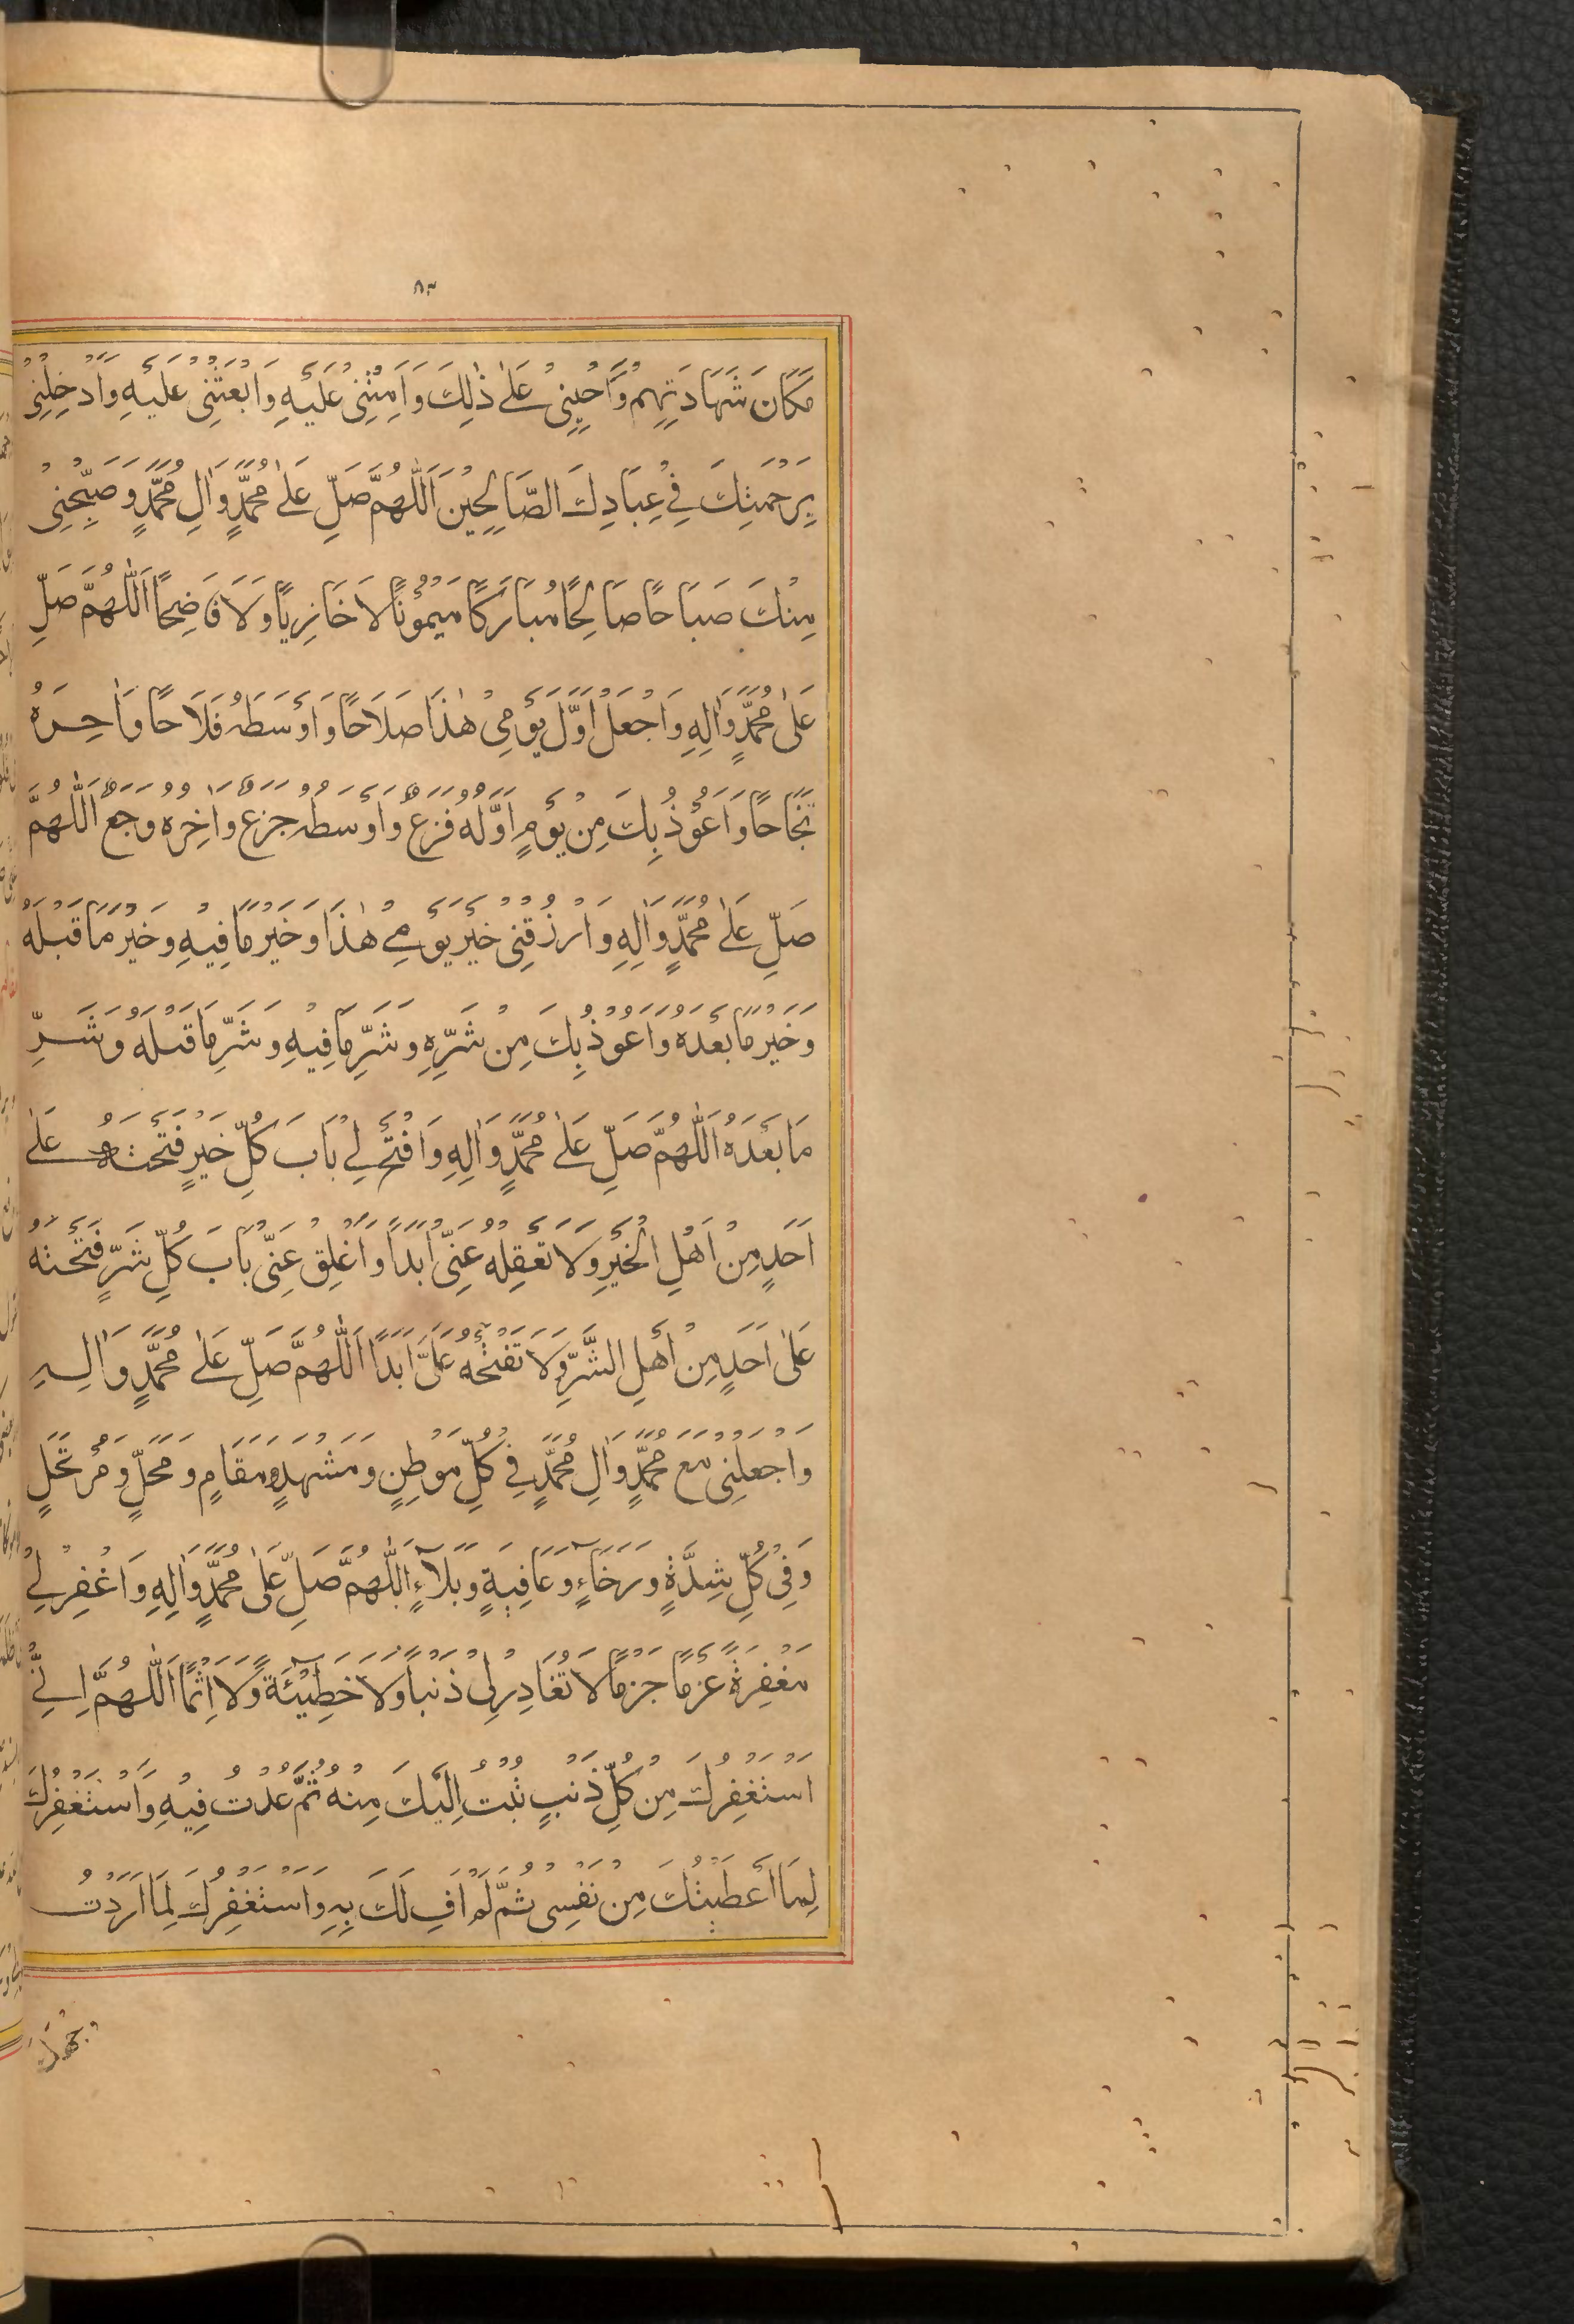 ٨٣
مَكَانَ شَهَادَتِهِمْ وَاَحْيِنِىْ عَلٰى ذٰلِكَ وَاَمِتْنِىْ عَلَيْهِ وَابْعَثْنِىْ عَلَيْهِ وَاَدْخِلْنِىْ
بِرَحْمَتِكَ فِىْ عِبَادِكَ الصَّالِحِيْنَ اَللّٰهُمَّ صَلِّ عَلٰى مُحَمَّدٍ وَاٰلِ مُحَمَّدٍ وَصَبِّحْنِىْ
مِنْكَ صَبَاحًا صَالِحًا مُبَارَكًا مَيْمُوْنًا لَا خَازِيًا وَلَا فَاضِحًا اَللّٰهُمَّ صَلِّ
عَلٰى مُحَمَّدٍ وَاٰلِهِ وَاجْعَلْ اَوَّلَ يَوْمِىْ هٰذَا صَلَاحًا وَاَوْسَطَهُ فَلَاحًا وَاٰخِرَهُ
نَجَاحًا وَاَعُوْذُ بِكَ مِنْ يَوْمٍ اَوَّلُهُ فَزَعٌ وَاَوْسَطُهُ جَزَعٌ وَاٰخِرُهُ وَجَعٌ اَللّٰهُمَّ
صَلِّ عَلٰى مُحَمَّدٍ وَاٰلِهِ وَارْزُقْنِىْ خَيْرَ يَوْمِىْ هٰذَا وَخَيْرَ مَا فِيْهِ وَخَيْرَ مَا قَبْلَهُ
وَخَيْرَ مَا بَعْدَهُ وَاَعُوْذُ بِكَ مِنْ شَرِّهِ وَشَرِّ مَا فِيْهِ وَشَرِّ مَا قَبْلَهُ وَشَرِّ
مَا بَعْدَهُ اَللّٰهُمَّ صَلِّ عَلٰى مُحَمَّدٍ وَاٰلِهِ وَافْتَحْ لِىْ بَابَ كُلِّ خَيْرٍ فَتَحْتَهُ عَلٰى
اَحَدٍ مِنْ اَهْلِ الْخَيْرِ وَلَا تَغْقِلْهُ عَنِّىْ اَبَدًا وَاَغْلِقْ عَنِّىْ بَابَ كُلِّ شَرٍّ فَتَحْتَهُ
عَلٰى اَحَدٍ مِنْ اَهْلِ الشَّرِّ وَلَا تَفْتَحْهُ عَلَىَّ اَبَدًا اَللّٰهُمَّ صَلِّ عَلٰى مُحَمَّدٍ وَاٰلِهِ
وَاجْعَلْنِىْ مَعَ مُحَمَّدٍ وَاٰلِ مُحَمَّدٍ فِىْ كُلِّ مَوْطِنٍ وَمَشْهَدٍ وَمَقَامٍ وَمَحَلٍّ وَمُرْتَحَلٍ
وَفِىْ كُلِّ شِدَّةٍ وَرَخَاءٍ وَعَافِيَةٍ وَبَلَاءٍ اَللّٰهُمَّ صَلِّ عَلٰى مُحَمَّدٍ وَاٰلِهِ وَاغْفِرْ لِىْ
مَغْفِرَةً عَزْمًا جَزْمًا لَا تُغَادِرُ لِىْ ذَنْبًا وَلَا خَطِيْئَةً وَلَا اِثْمًا اَللّٰهُمَّ اِنِّىْ
اَسْتَغْفِرُكَ مِنْ كُلِّ ذَنْبٍ تُبْتُ اِلَيْكَ مِنْهُ ثُمَّ عُدْتُ فِيْهِ وَاَسْتَغْفِرُكَ
لِمَا اَعْطَيْتُكَ مِنْ نَفْسِىْ ثُمَّ لَمْ اَفِ لَكَ بِهِ وَاَسْتَغْفِرُكَ لِمَا اَرَدْتُ